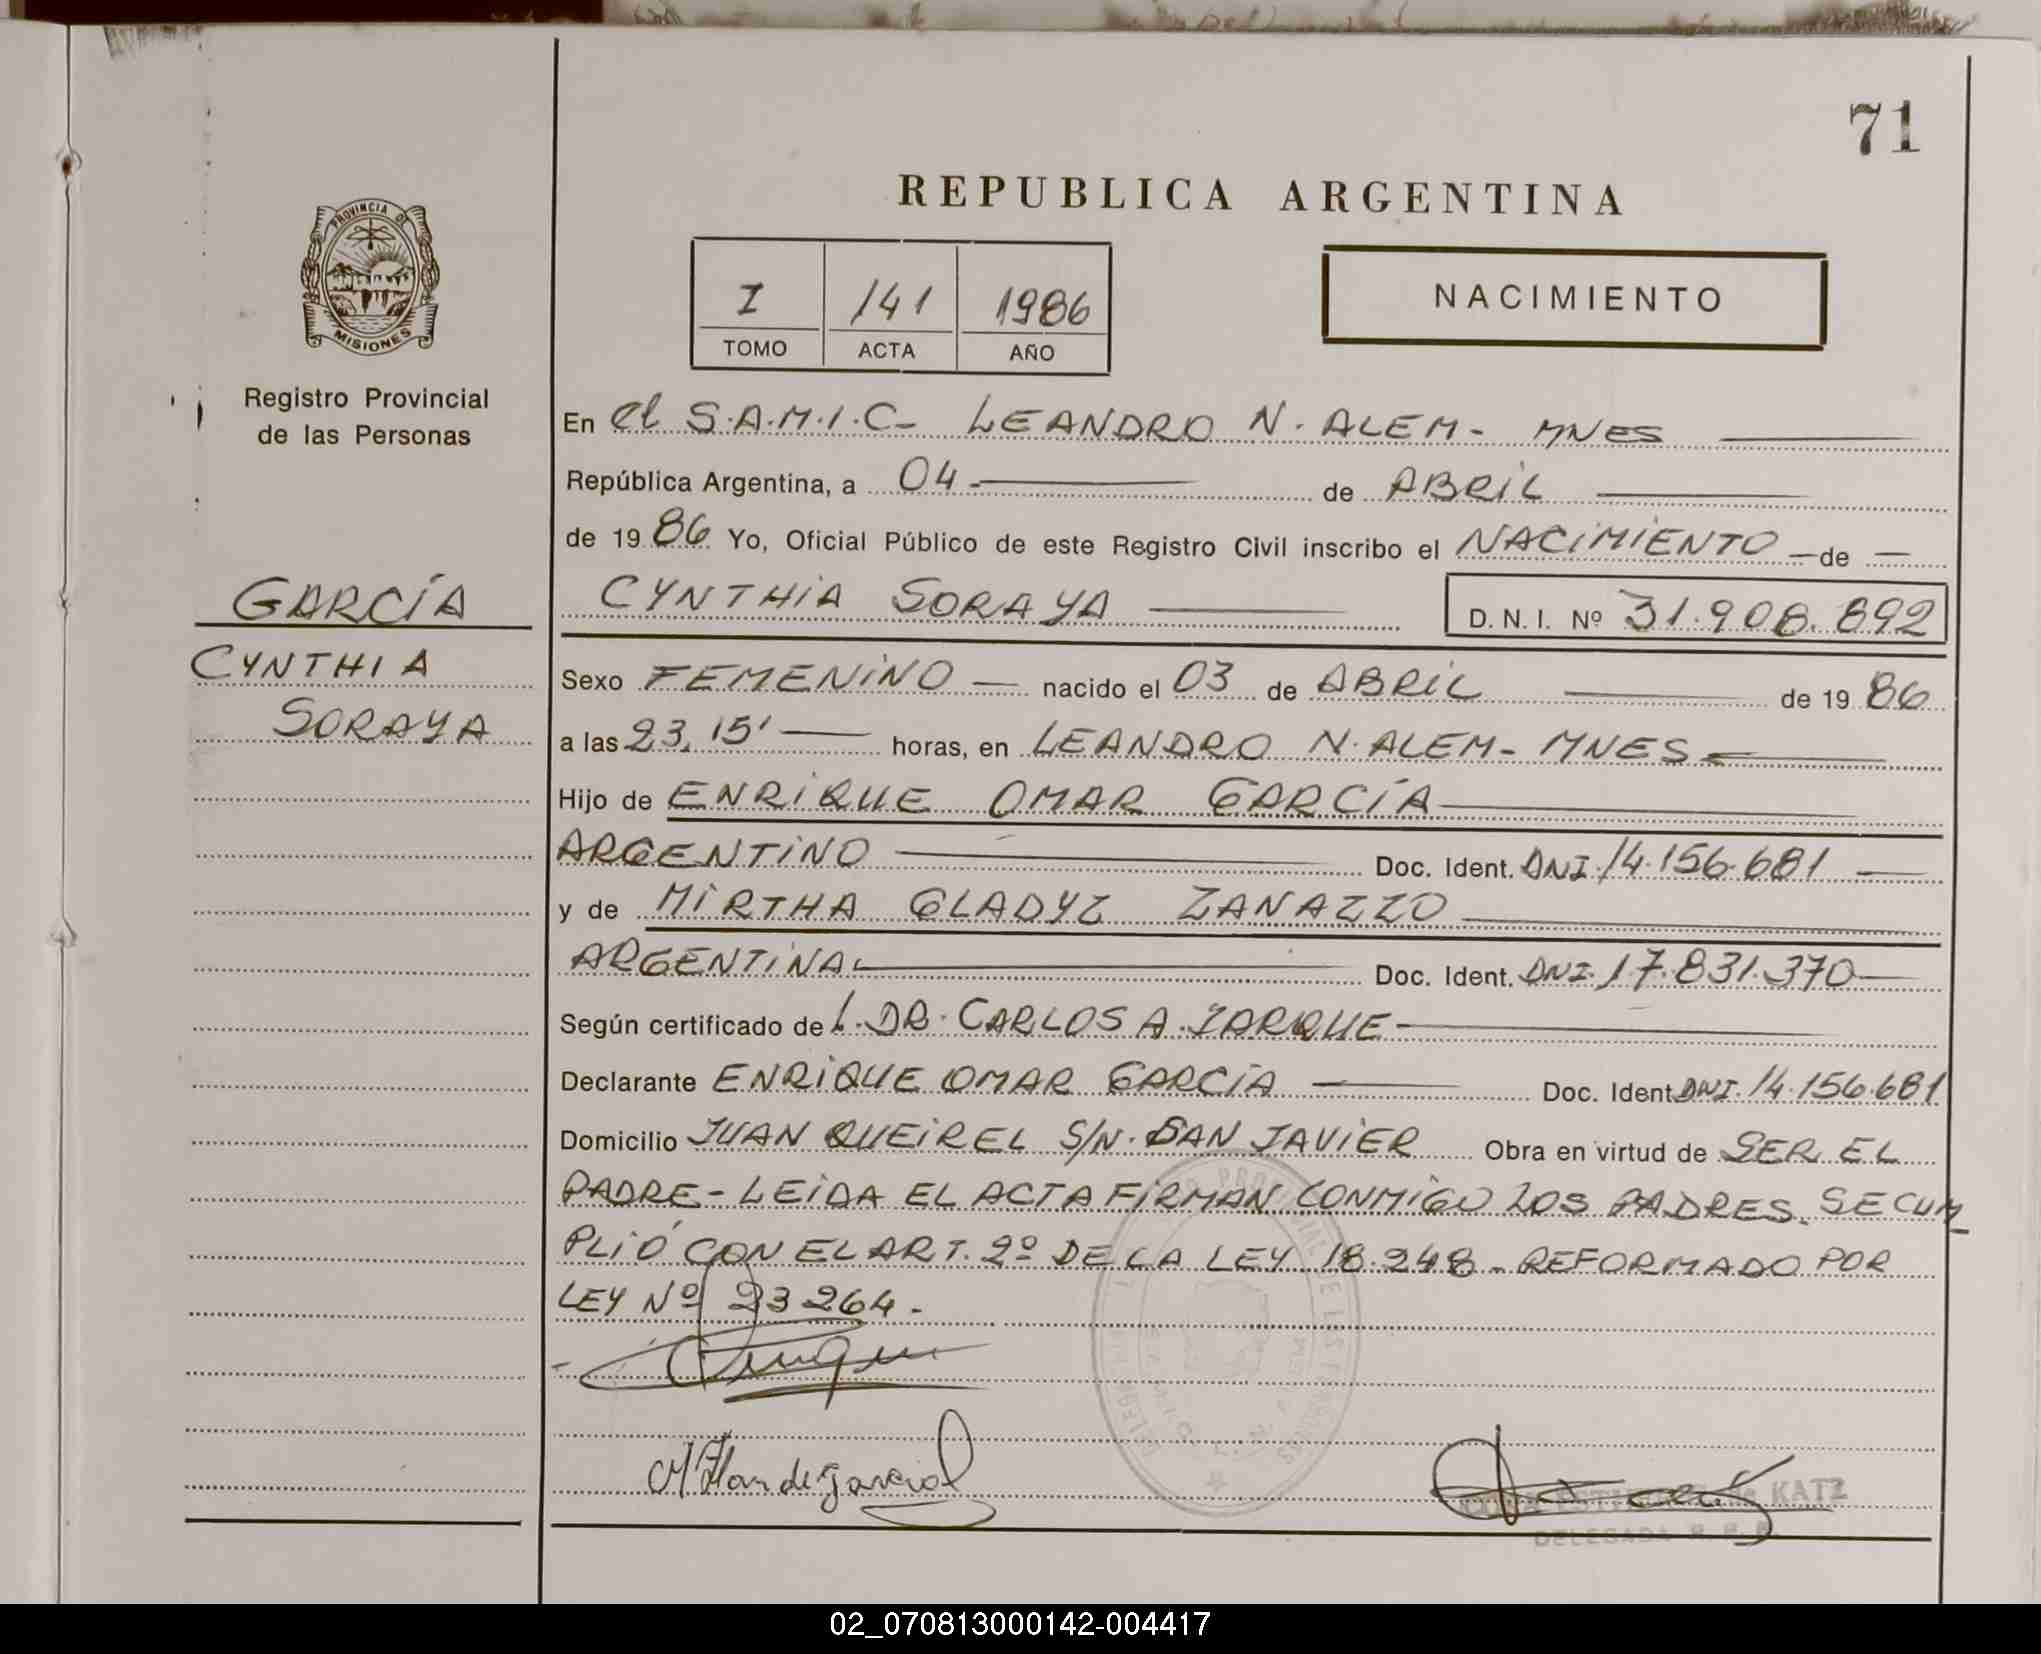 71
REPUBLICA ARGENTINA
PROVINCIA DE
MISIONES
Registro Provincial
de las Personas
I 141 1986
TOMO ACTA AÑO
NACIMIENTO
En el S.A.M.I.C- LEANDRO N. ALEM- MNES
República Argentina, a 04- de ABRIL
de 1986 Yo, Oficial Público de este Registro Civil inscribo el NACIMIENTO - de -
GARCÍA
CYNTHIA SORAYA D. N. I. Nº 31.908.892
CYNTHIA
SORAYA
Sexo FEMENINO - nacido el 03 de ABRIL de 1986
a las 23,15' horas, en LEANDRO N. ALEM- MNES
Hijo de ENRIQUE OMAR GARCÍA
ARGENTINO Doc. Ident. DNI 14.156.681
y de MIRTHA GLADYZ ZANAZZO
ARGENTINA Doc. Ident. DNI. 17.831.370
Según certificado de l. DR. CARLOS A. ZARQUE
Declarante ENRIQUE OMAR GARCÍA Doc. Ident. DNI. 14.156.681
Domicilio JUAN QUEIREL S/N. SAN JAVIER Obra en virtud de SER EL
PADRE - LEIDA EL ACTA FIRMAN CONMIGO LOS PADRES. SE CUM_
PLIÓ CON EL ART. 2º DE LA LEY 18.248 - REFORMADO POR
LEY Nº 23264.-
de KATZ
DELEGADA R. P. P.
02_070813000142-004417